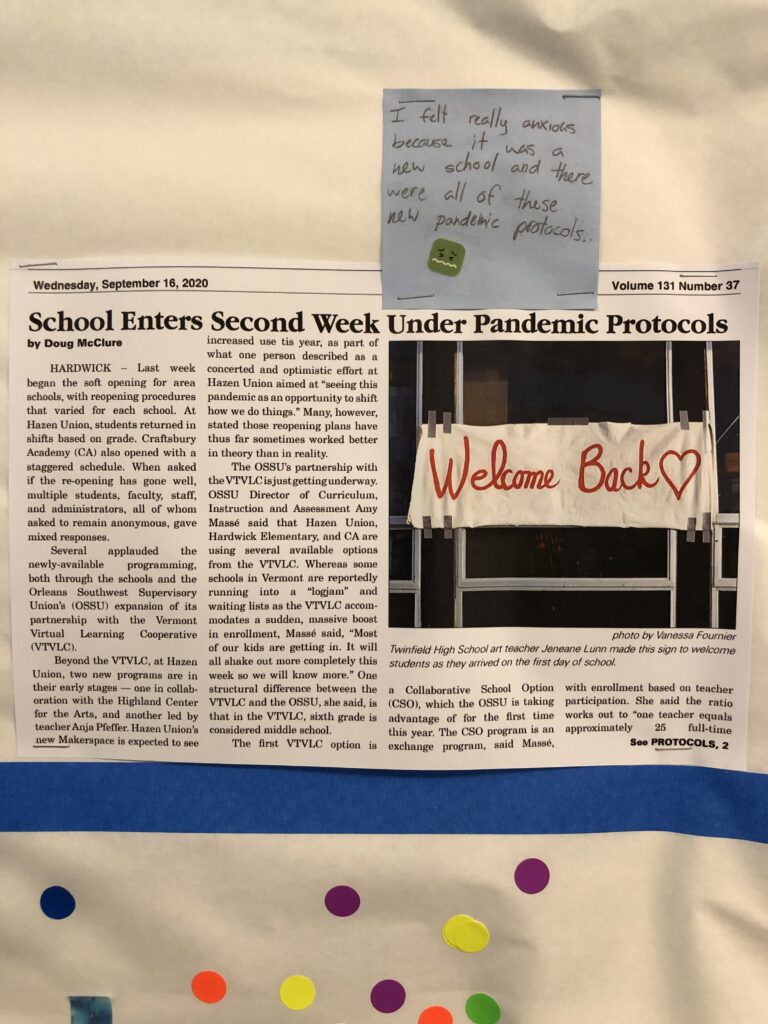 I felt really anxious
because it was a
new school and there
were all of these
new pandemic protocols..
Wednesday, September 16, 2020
Volume 131 Number 37
School Enters Second Week Under Pandemic Protocols
by Doug McClure
HARDWICK – Last week
began the soft opening for area
schools, with reopening procedures
that varied for each school. At
Hazen Union, students returned in
shifts based on grade. Craftsbury
Academy (CA) also opened with a
staggered schedule. When asked
if the re-opening has gone well,
multiple students, faculty, staff,
and administrators, all of whom
asked to remain anonymous, gave
mixed responses.
Several applauded the
newly-available programming,
both through the schools and the
Orleans Southwest Supervisory
Union's (OSSU) expansion of its
partnership with the Vermont
Virtual Learning Cooperative
(VTVLC).
Beyond the VTVLC, at Hazen
Union, two new programs are in
their early stages — one in collab-
oration with the Highland Center
for the Arts, and another led by
teacher Anja Pfeffer. Hazen Union's
new Makerspace is expected to see
increased use tis year, as part of
what one person described as a
concerted and optimistic effort at
Hazen Union aimed at "seeing this
pandemic as an opportunity to shift
how we do things." Many, however,
stated those reopening plans have
thus far sometimes worked better
in theory than in reality.
The OSSU's partnership with
the VTVLC is just getting underway.
OSSU Director of Curriculum,
Instruction and Assessment Amy
Massé said that Hazen Union,
Hardwick Elementary, and CA are
using several available options
from the VTVLC. Whereas some
schools in Vermont are reportedly
running into a "logjam" and
waiting lists as the VTVLC accom-
modates a sudden, massive boost
in enrollment, Massé said, "Most
of our kids are getting in. It will
all shake out more completely this
week so we will know more." One
structural difference between the
VTVLC and the OSSU, she said, is
that in the VTVLC, sixth grade is
considered middle school.
The first VTVLC option is
Welcome Back
photo by Vanessa Fournier
Twinfield High School art teacher Jeneane Lunn made this sign to welcome
students as they arrived on the first day of school.
a Collaborative School Option
(CSO), which the OSSU is taking
advantage of for the first time
this year. The CSO program is an
exchange program, said Massé,
with enrollment based on teacher
participation. She said the ratio
works out to "one teacher equals
approximately 25 full-time
See PROTOCOLS, 2